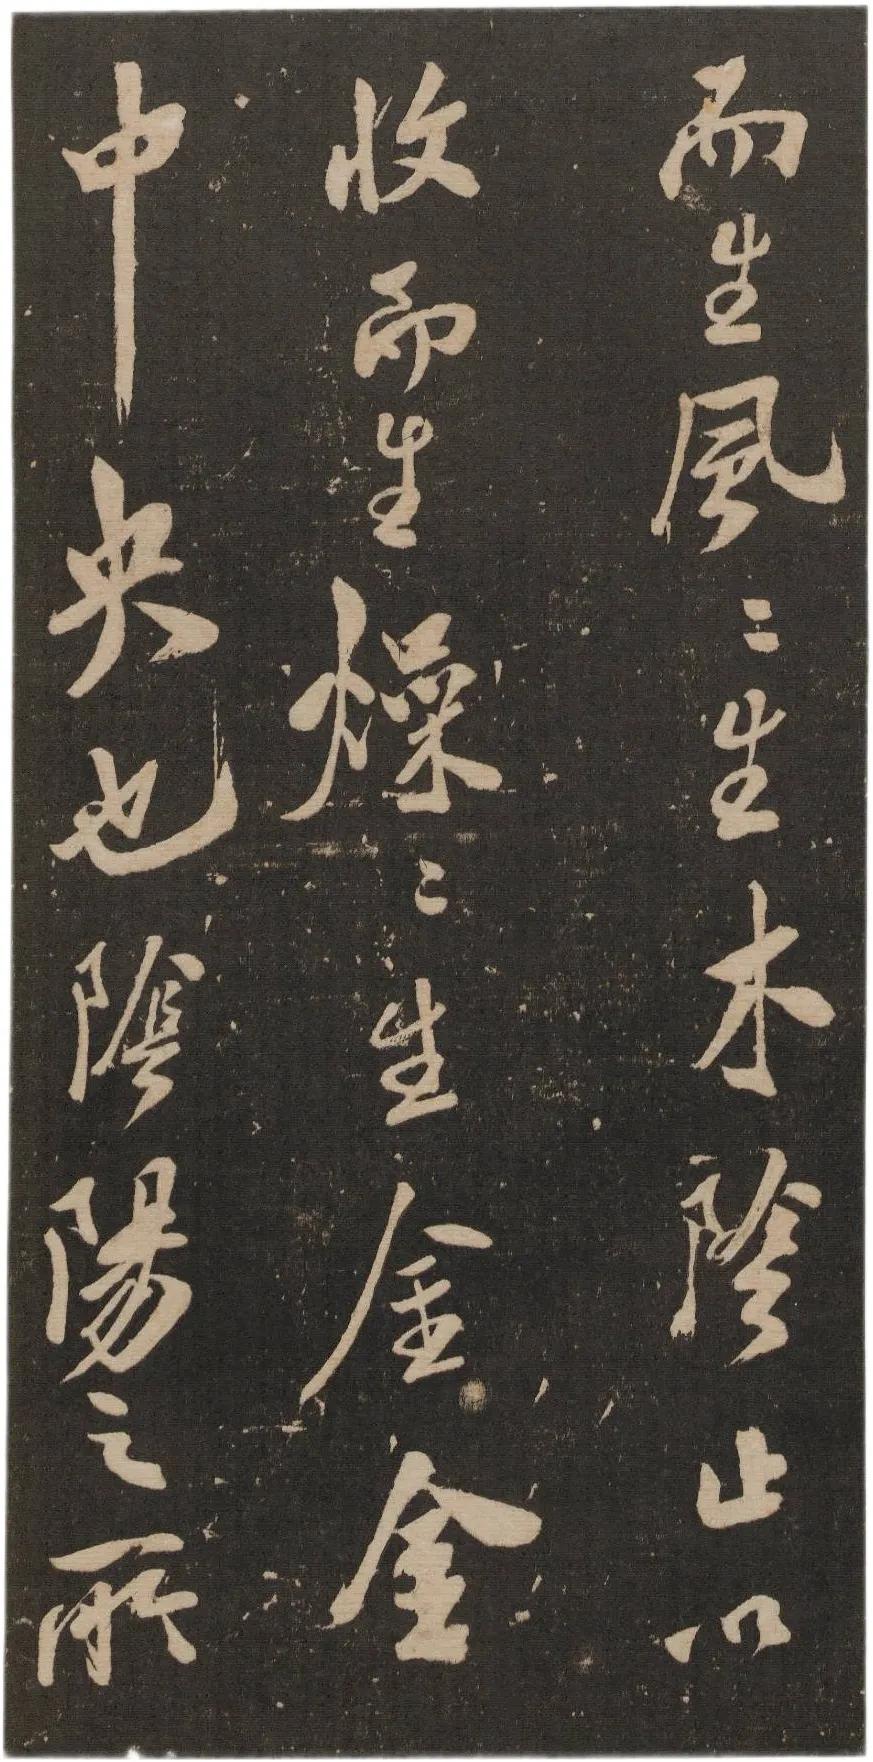 而生風〻生木陰止以
收而生燥〻生金金
中央也陰陽之所